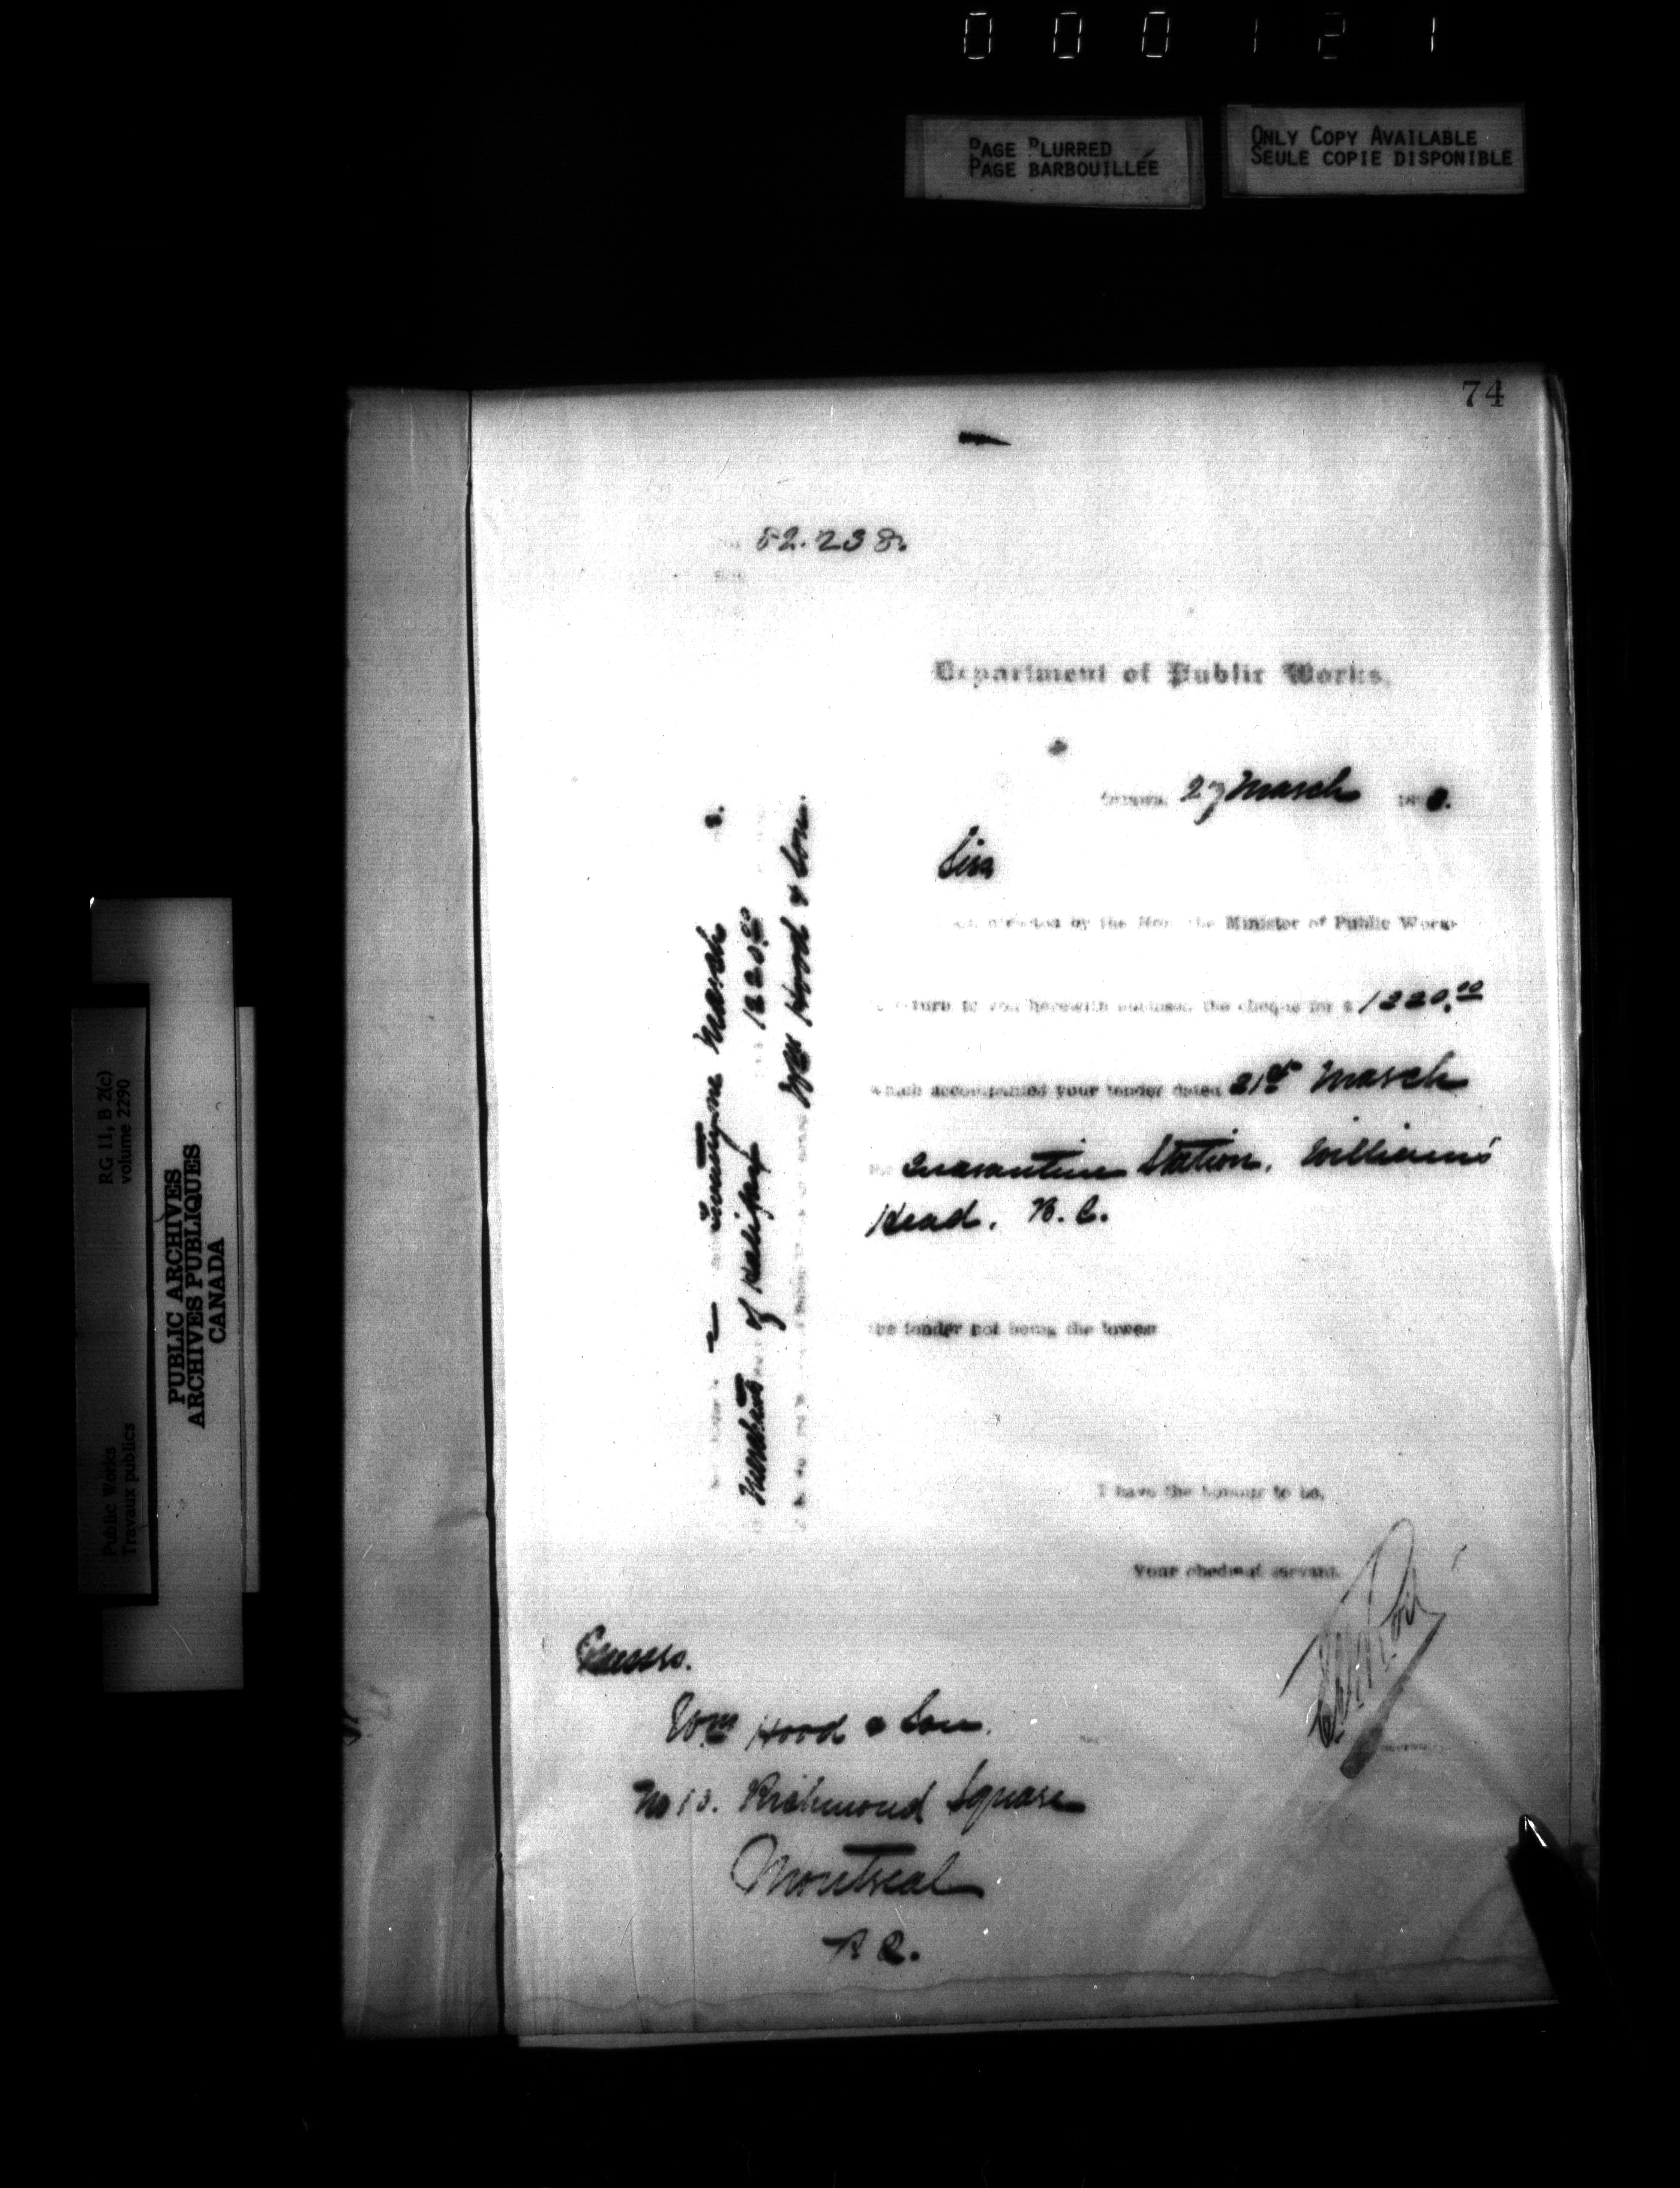 000121
PAGE BLURRED
PAGE BARBOUILLÉE
ONLY COPY AVAILABLE
SEULE COPIE DISPONIBLE
74
52.238.
Department of Public Works,
Ottawa, 27 March 18
Sirs
directed by the Hon. the Minister of Public Works
return to you herewith enclosed the cheque for $ 1220.00
which accompanied your tender dated 21st March
Quarantine Station, Williams'
Head, B.C.
the tender not being the lowest
I have the honour to be,
Your obedient servant,
Messrs.
Wm Hood & Son.
No 10. Richmond Square
Montreal
P.Q.
March
Merchants of Halifax 1220.00
Wm Hood & Son.
RG 11, B 2(c)
volume 2290
Public Works
Travaux publics
PUBLIC ARCHIVES
ARCHIVES PUBLIQUES
CANADA